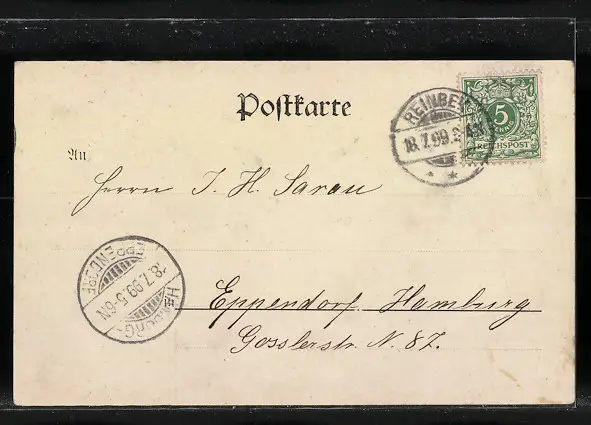 Postkarte
REINBEK
18.7.99.2-
5
REICHSPOST
An
Herrn J. H. Sarau
HAMBURG-
EPPENDORF
18.7.99.5-6N.
Eppendorf Hamburg
Gosslerstr. N. 87.